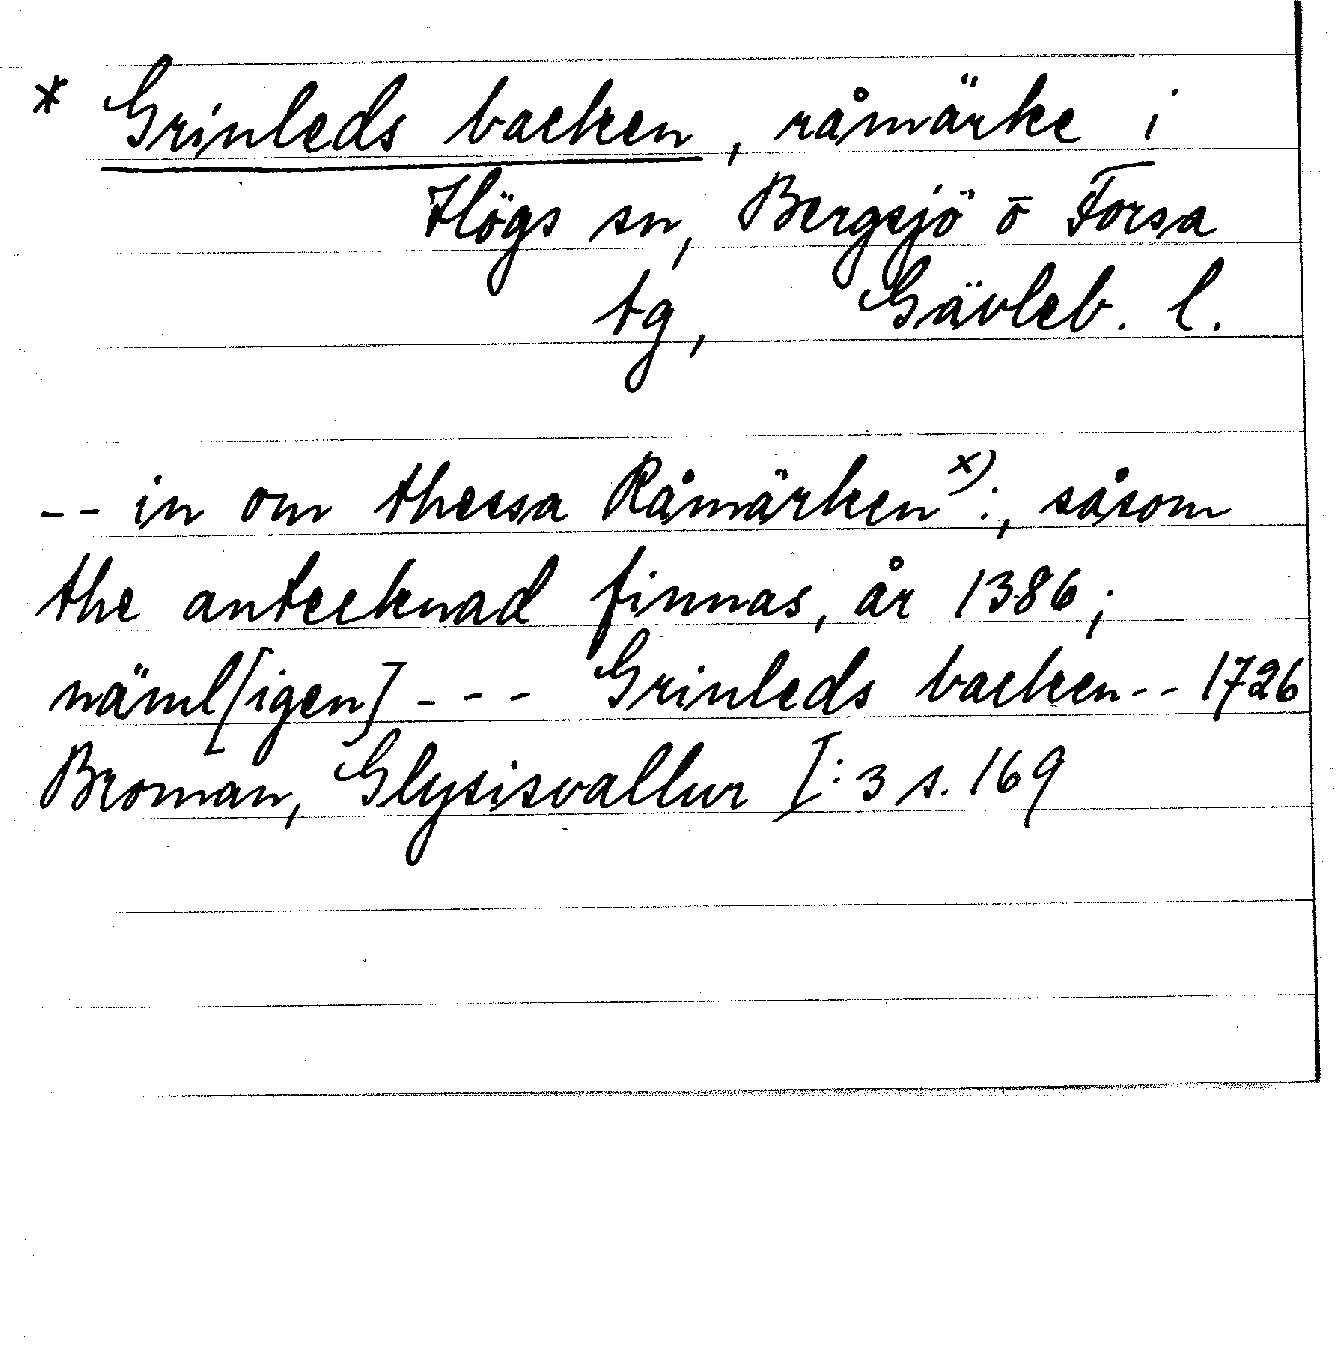 * Grinleds backen, råmärke i
Högs sn, Bergsjö o Forsa
tg, Gävleb. l.
-- in om thessa Råmärken x) :, såsom
the antecknad finnas, år 1386;
näml[igen] --- Grinleds backen -- 1726
Broman, Glysisvallur I:3 s. 169